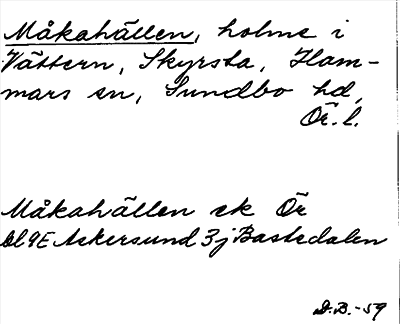 Måkahällen, holme i
Vättern, Skyrsta, Ham-
mars sn, Sundbo hd,
Ör. l.
Måkahällen ek Ör
bl 9E Askersund 3j Bastedalen
D.B.-59